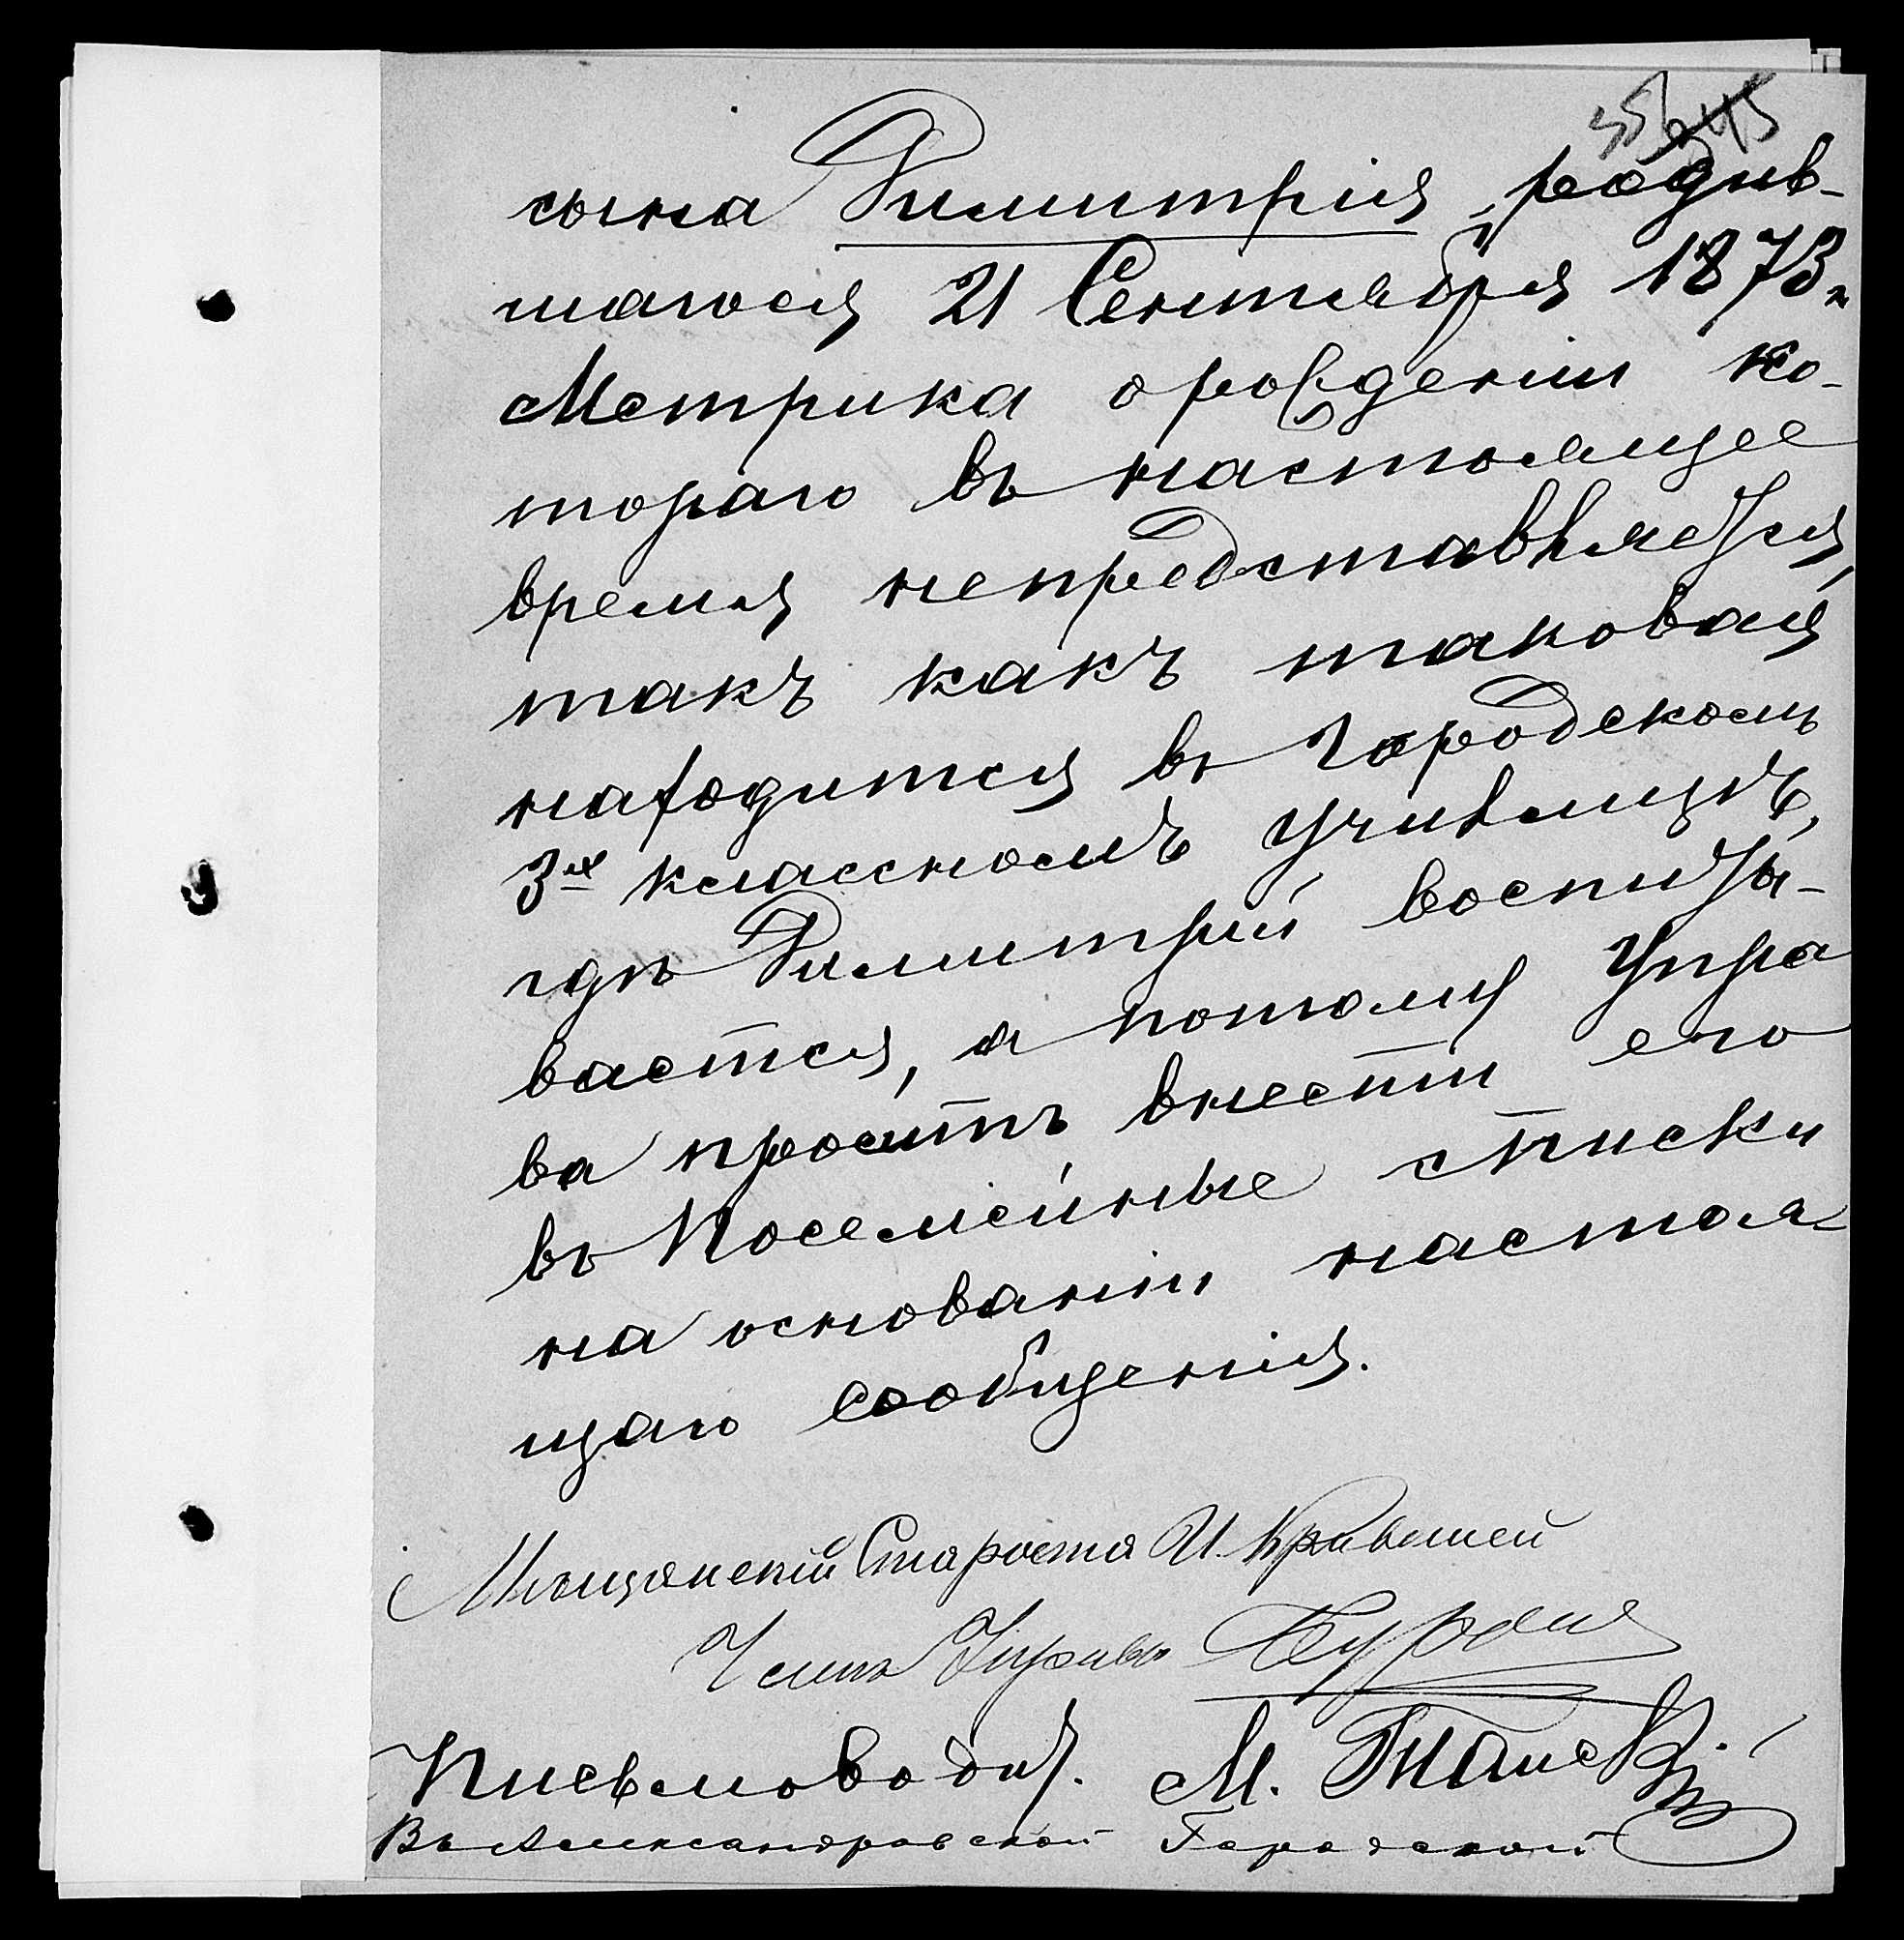 356 345
сына Димитрія, родив-
шагося 21 Сентября 1873 г.
Метрика о рожденіи ко-
тораго въ настоящее
время непредставляется,
такъ какъ таковая
находится въ Городскомъ
3хъ классномъ Училищѣ,
гдѣ Димитрій воспиты-
вается, а потому Упра
ва проситъ внести его
въ Посемейные списки
на основаніи настоя-
щаго сообщенія.
Мѣщанскій Староста И.
Членъ Управы
Письмоводит. М.
Въ Александровской Городской